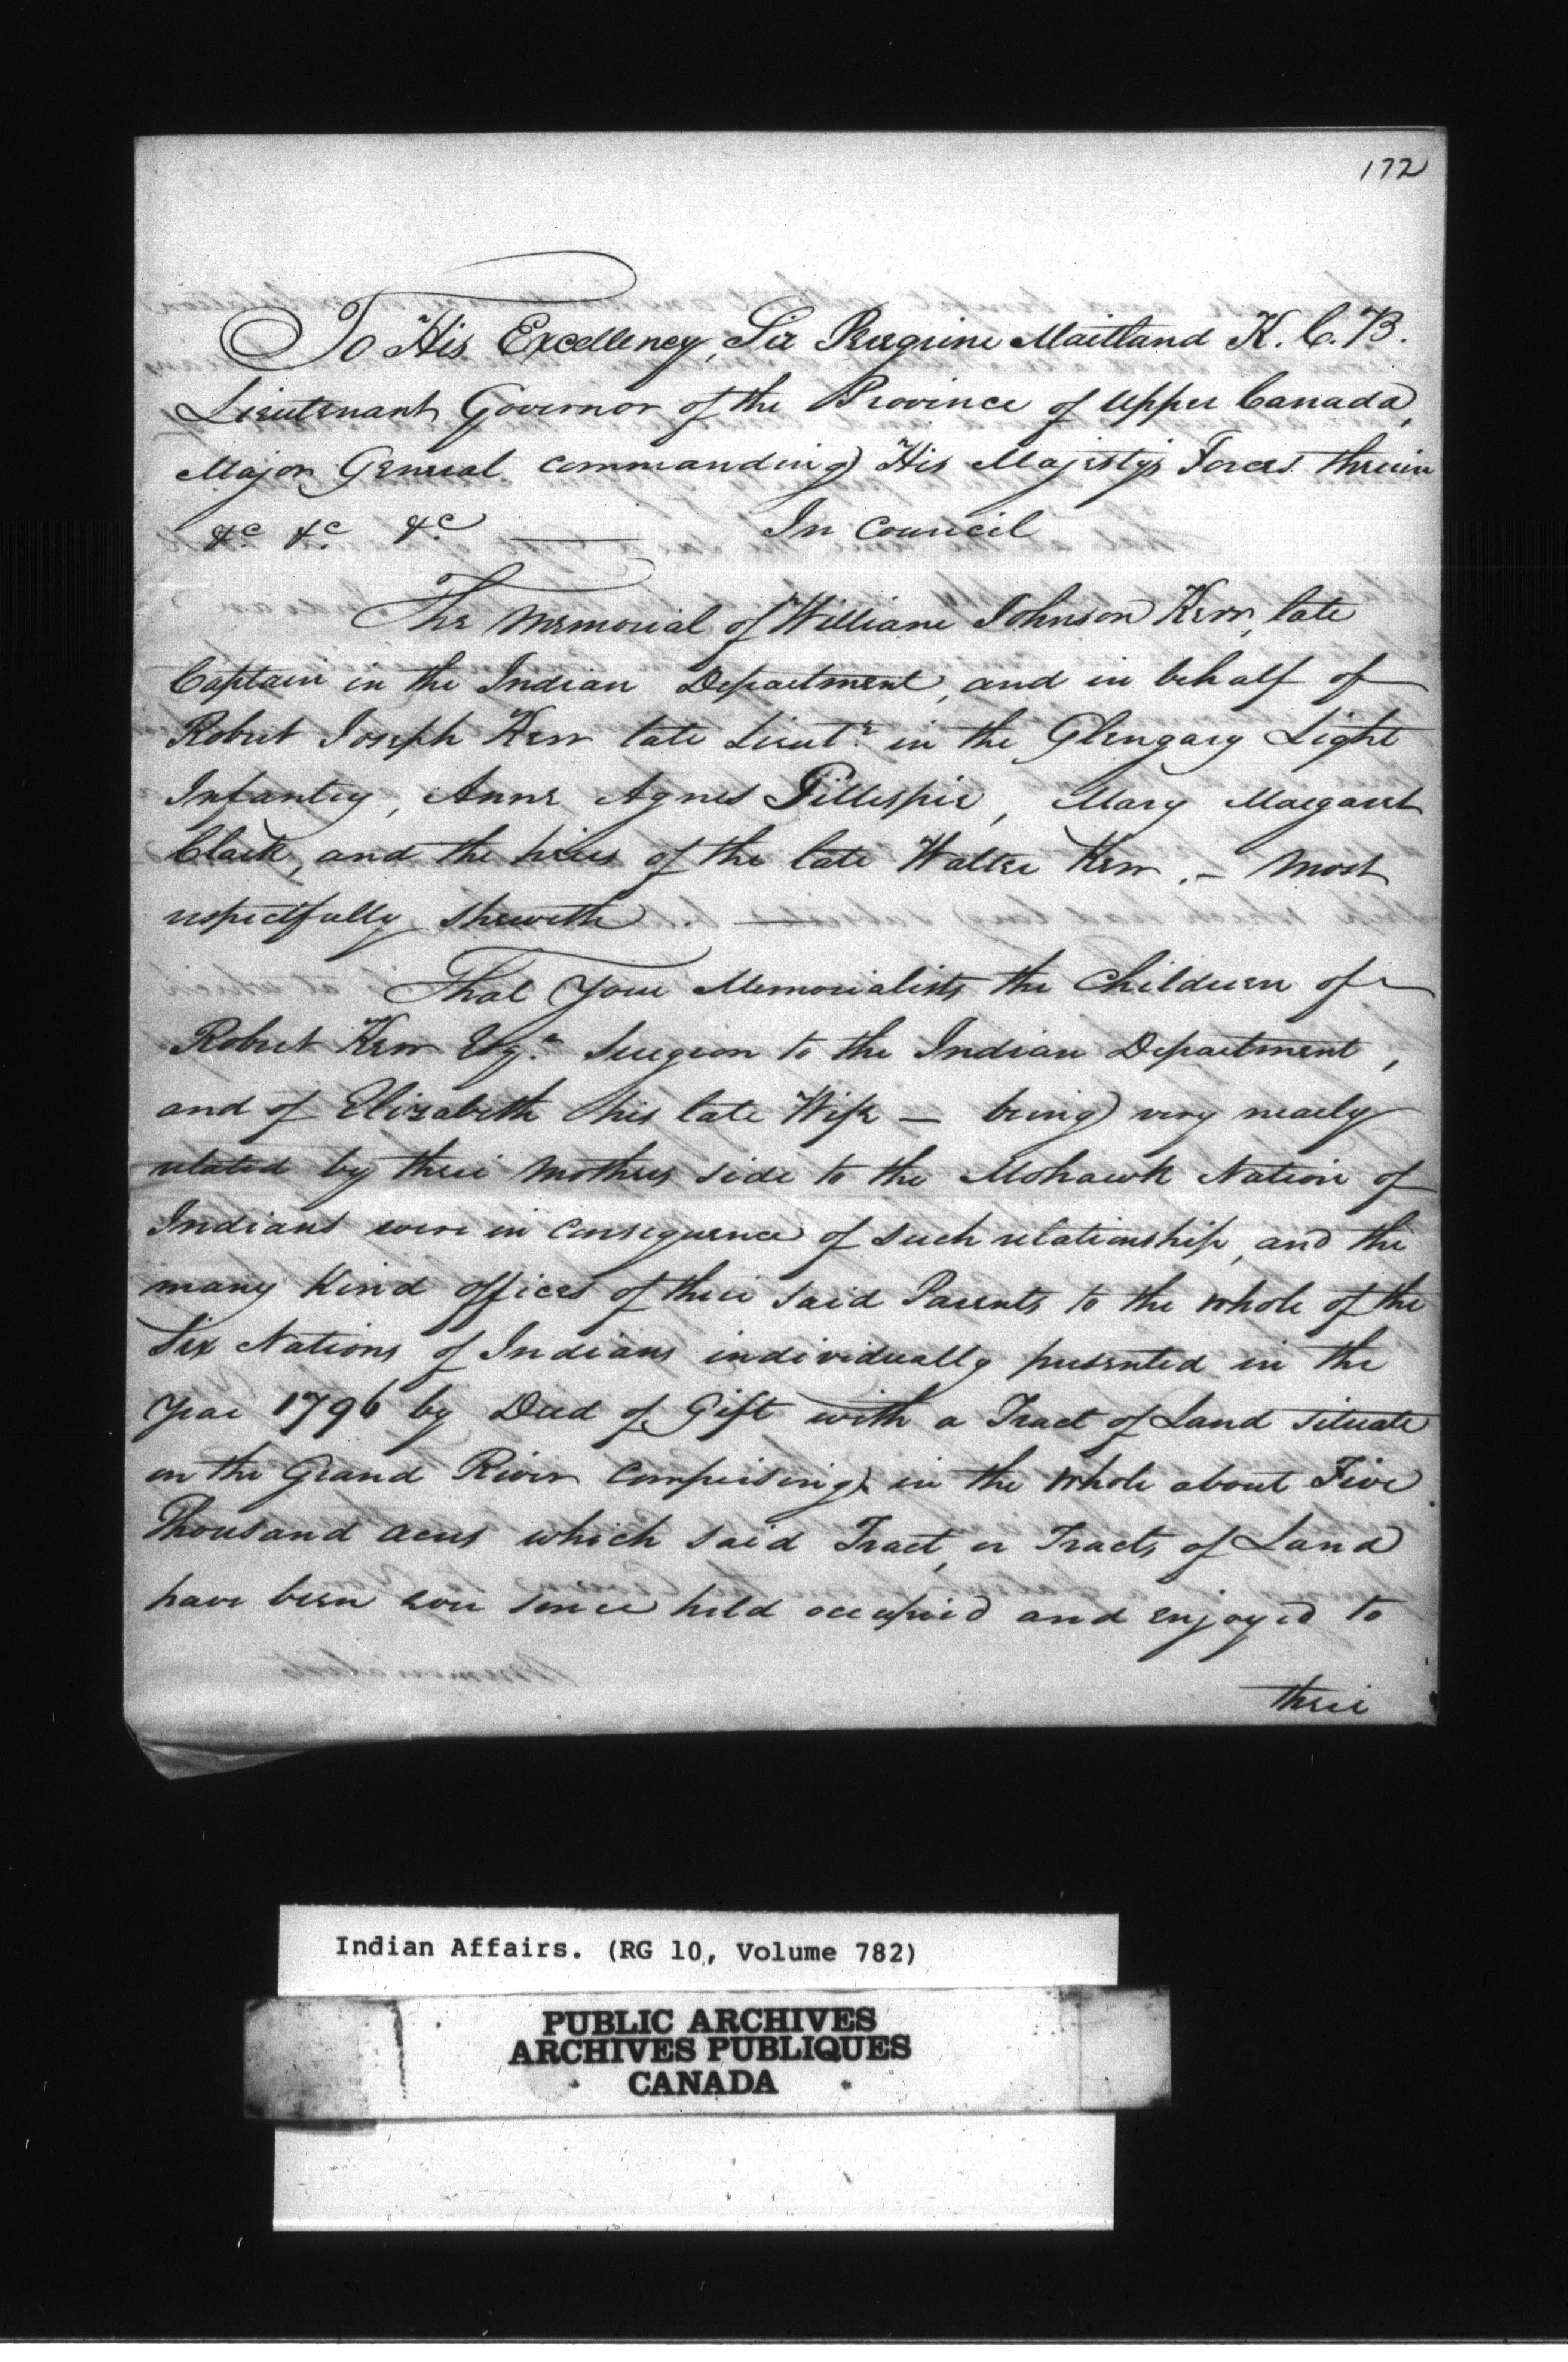 172
To His Excellency, Sir Peregrine Maitland K.C.B.
Lieutenant Governor of the Province of Upper Canada,
Major General commanding His Majesty's Forces therein
&c &c &c — In Council
The Memorial of William Johnson Kerr, late
Captain in the Indian Department, and in behalf of
Robert Joseph Kerr late Lieut. in the Glengary Light
Infantry, Anne Agnes Gillespie, Mary Margaret
Clark, and the heirs of the late Walter Kerr. – Most
respectfully sheweth. —
That Your Memorialists the Children of
Robert Kerr Esqr. Surgeon to the Indian Department,
and of Elizabeth his late Wife — being very nearly
related by their Mothers side to the Mohawk Nation of
Indians were in consequence of such relationship, and the
many kind offices of their said Parents to the whole of the
Six Nations of Indians individually presented in the
Year 1796 by Deed of Gift with a Tract of Land situate
on the Grand River comprising in the whole about Five
Thousand acres which said Tract, or Tracts of Land
have been ever since held occupied and enjoyed to
their
Indian Affairs. (RG 10, Volume 782)
PUBLIC ARCHIVES
ARCHIVES PUBLIQUES
CANADA